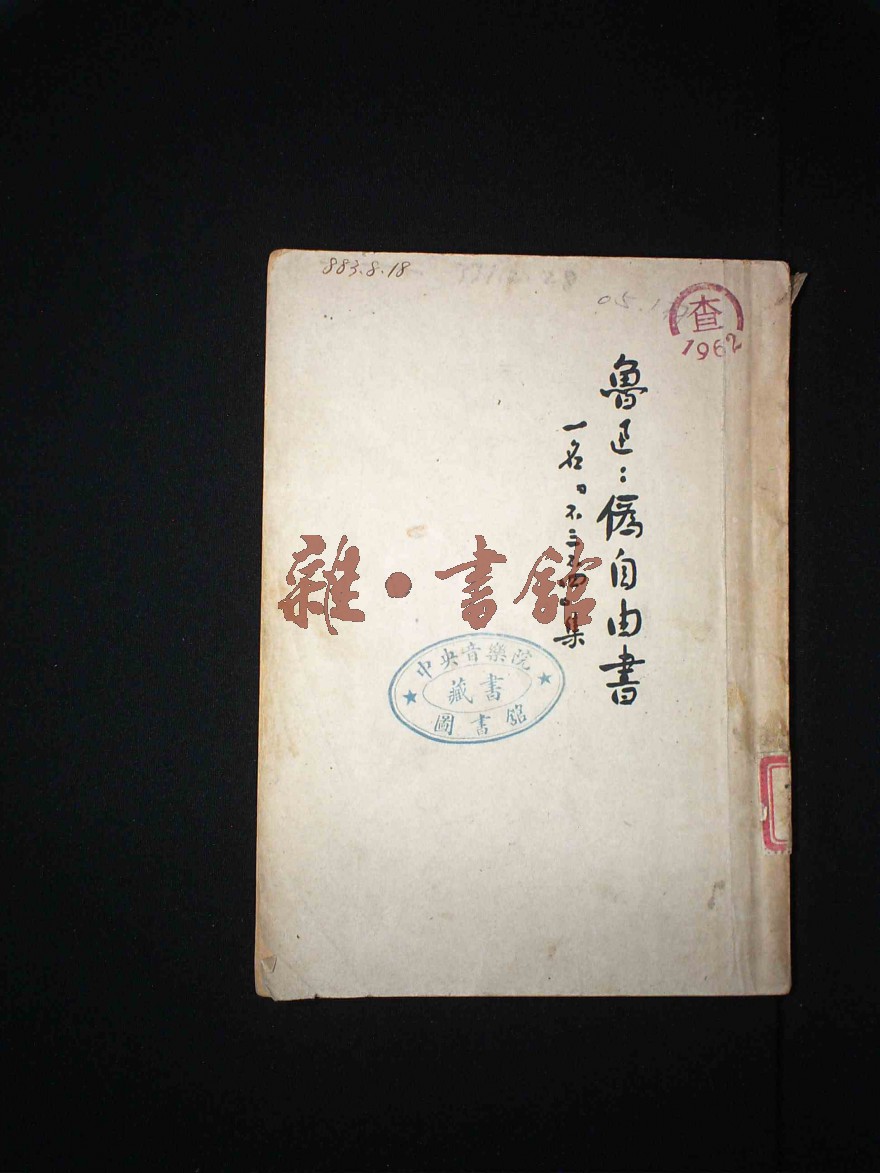 883.8.18
查
1962
魯迅：僞自由書
一名「不三不四」集
雜·書館
中央音樂院
藏書
圖書館